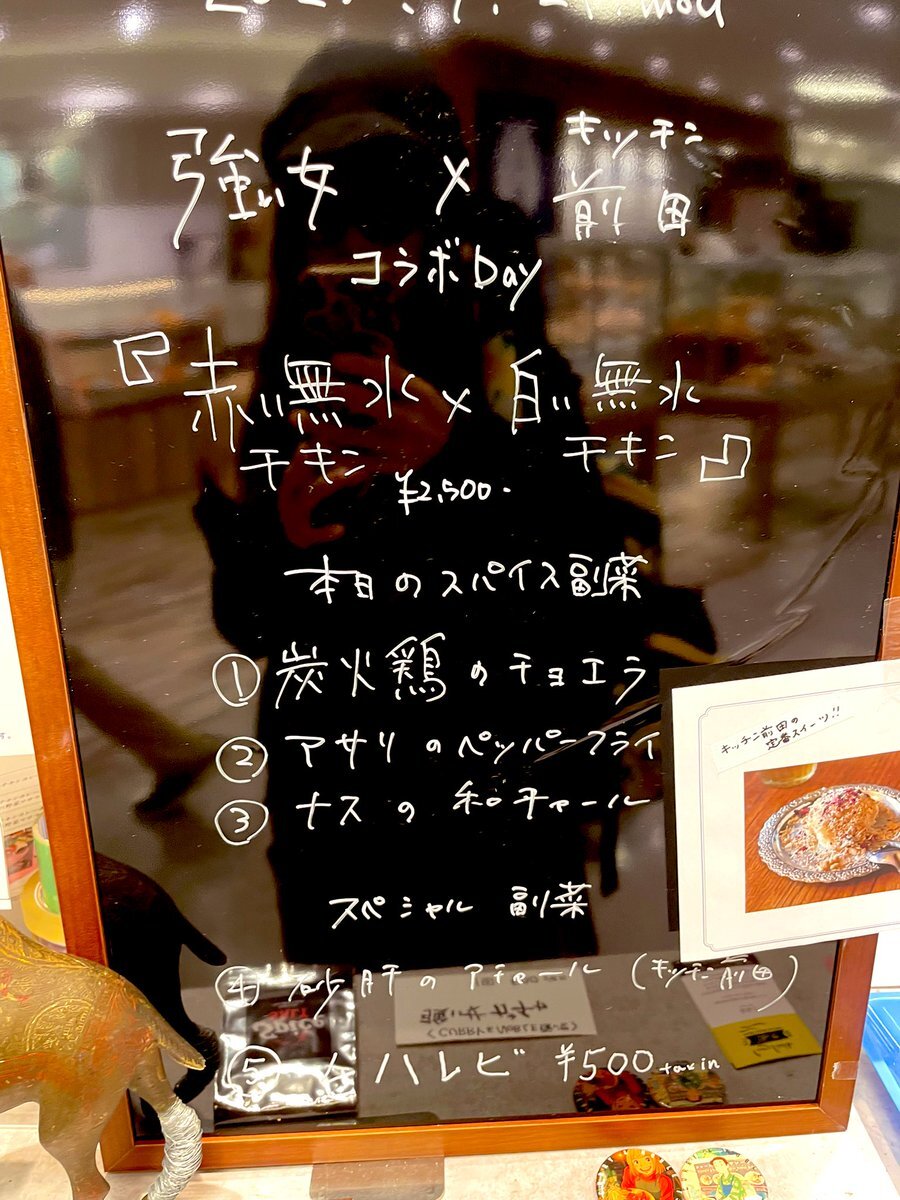 強い女 × キッチン前田
コラボDay
『赤い無水チキン × 白い無水チキン』
¥2,500-
本日のスパイス副菜
① 炭火鶏のチョエラ
② アサリのペッパーフライ
③ ナスの和チャール
スペシャル 副菜
④ 砂肝のアチャール (キッチン前田)
⑤ ハレビ ¥500 tax in
キッチン前田の
定番スイーツ!!
Spice